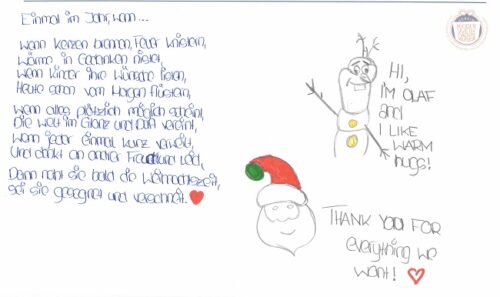 Einmal im Jahr, wenn...
wenn Kerzen brennen, Feuer knistern,
wärme in Gedanken
wenn Kinder ihre Wünsche
Heute schon vom Morgen flüstern,
wenn alles plötzlich möglich scheint,
Die Welt im Glanz und Duft vereint,
wenn jeder einmal kurz verweilt,
Und denkt an andrer Freud und Leid,
Dann naht sie bald die Weihnachtszeit,
sei sie gesegnet und verschneit.
HI,
I'M OLAF
and
I LIKE
WARM
hugs!
THANK YOU FOR
everything we
want!